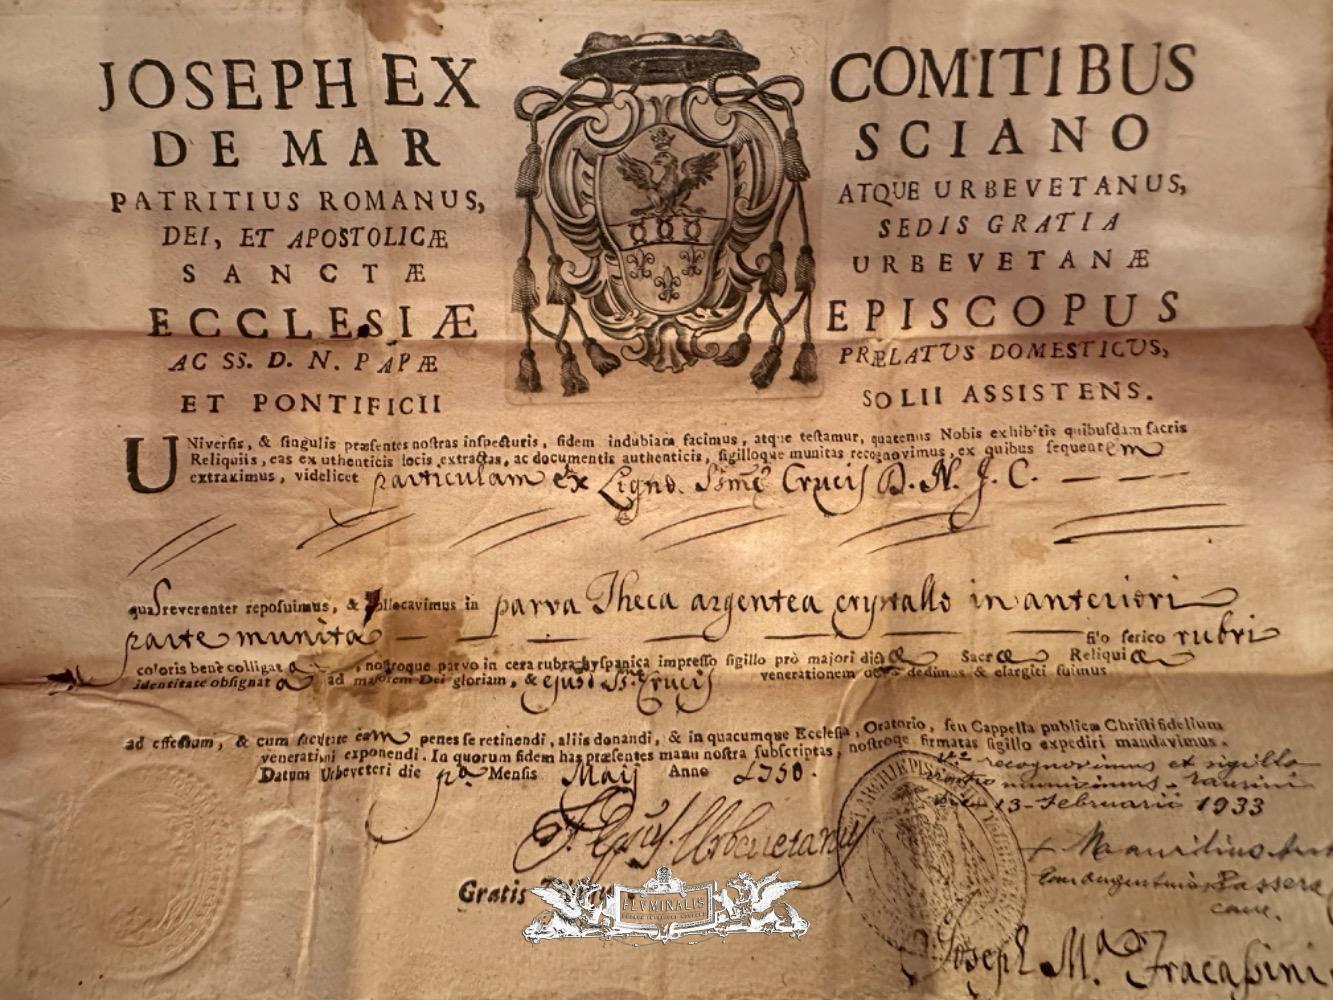 JOSEPH EX COMITIBUS
DE MAR SCIANO
PATRITIUS ROMANUS, ATQUE URBEVETANUS,
DEI, ET APOSTOLICÆ SEDIS GRATIA
SANCTÆ URBEVETANÆ
ECCLESIÆ EPISCOPUS
AC SS. D. N. PAPÆ PRÆLATUS DOMESTICUS,
ET PONTIFICII SOLII ASSISTENS.
UNiverſis, & ſingulis præſentes noſtras inſpecturis, fidem indubiam facimus, atque teſtamur, quatenus Nobis exhibitis quibuſdam ſacris
Reliquiis, eas ex uthenticis locis extractas, ac documentis authenticis, ſigilloque munitas recognovimus, ex quibus ſequentem
extraximus, videlicet particulam ex Ligno Crucis D. N. J. C.
quas reverenter repoſuimus, & collocavimus in parva Theca argentea cryſtallo in anteriori
parte munita filo ſerico rubri
coloris benè colligat a, noſtroque parvo in cera rubra hyſpanica impreſſo ſigillo prò majori Sacræ Reliquiæ
identitate obſignat a ad majorem Dei gloriam, & Crucis venerationem dedimus & elargiti fuimus
ad effectum, & cum facultate eam penes ſe retinendi, aliis donandi, & in quacumque Eccleſia, Oratorio, ſeu Cappella publicæ Chriſti fidelium
venerationi exponendi. In quorum fidem has præſentes manu noſtra ſubſcriptas, noſtroqe firmatas ſigillo expediri mandavimus.
Datum Urbeveteri die pa Mensis Maij Anno 1750.
recognovimus et sigillo
munivimus
13 Februarii 1933
J. Epũs Urbevetanus
Gratis
FLVMINALIS
Joseph Ma. Fracaſsini